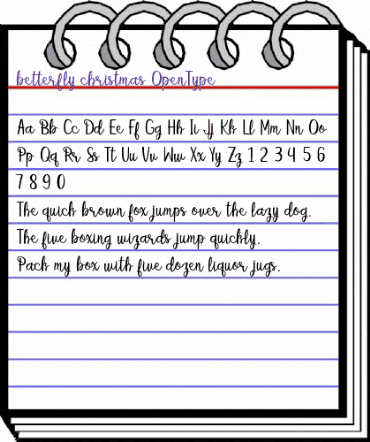 betterfly christmas OpenType
Aa Bb Cc Dd Ee Ff Gg Hh Ii Jj Kk Ll Mm Nn Oo
Pp Qq Rr Ss Tt Uu Vv Ww Xx Yy Zz 1 2 3 4 5 6
7 8 9 0
The quick brown fox jumps over the lazy dog.
The five boxing wizards jump quickly.
Pack my box with five dozen liquor jugs.